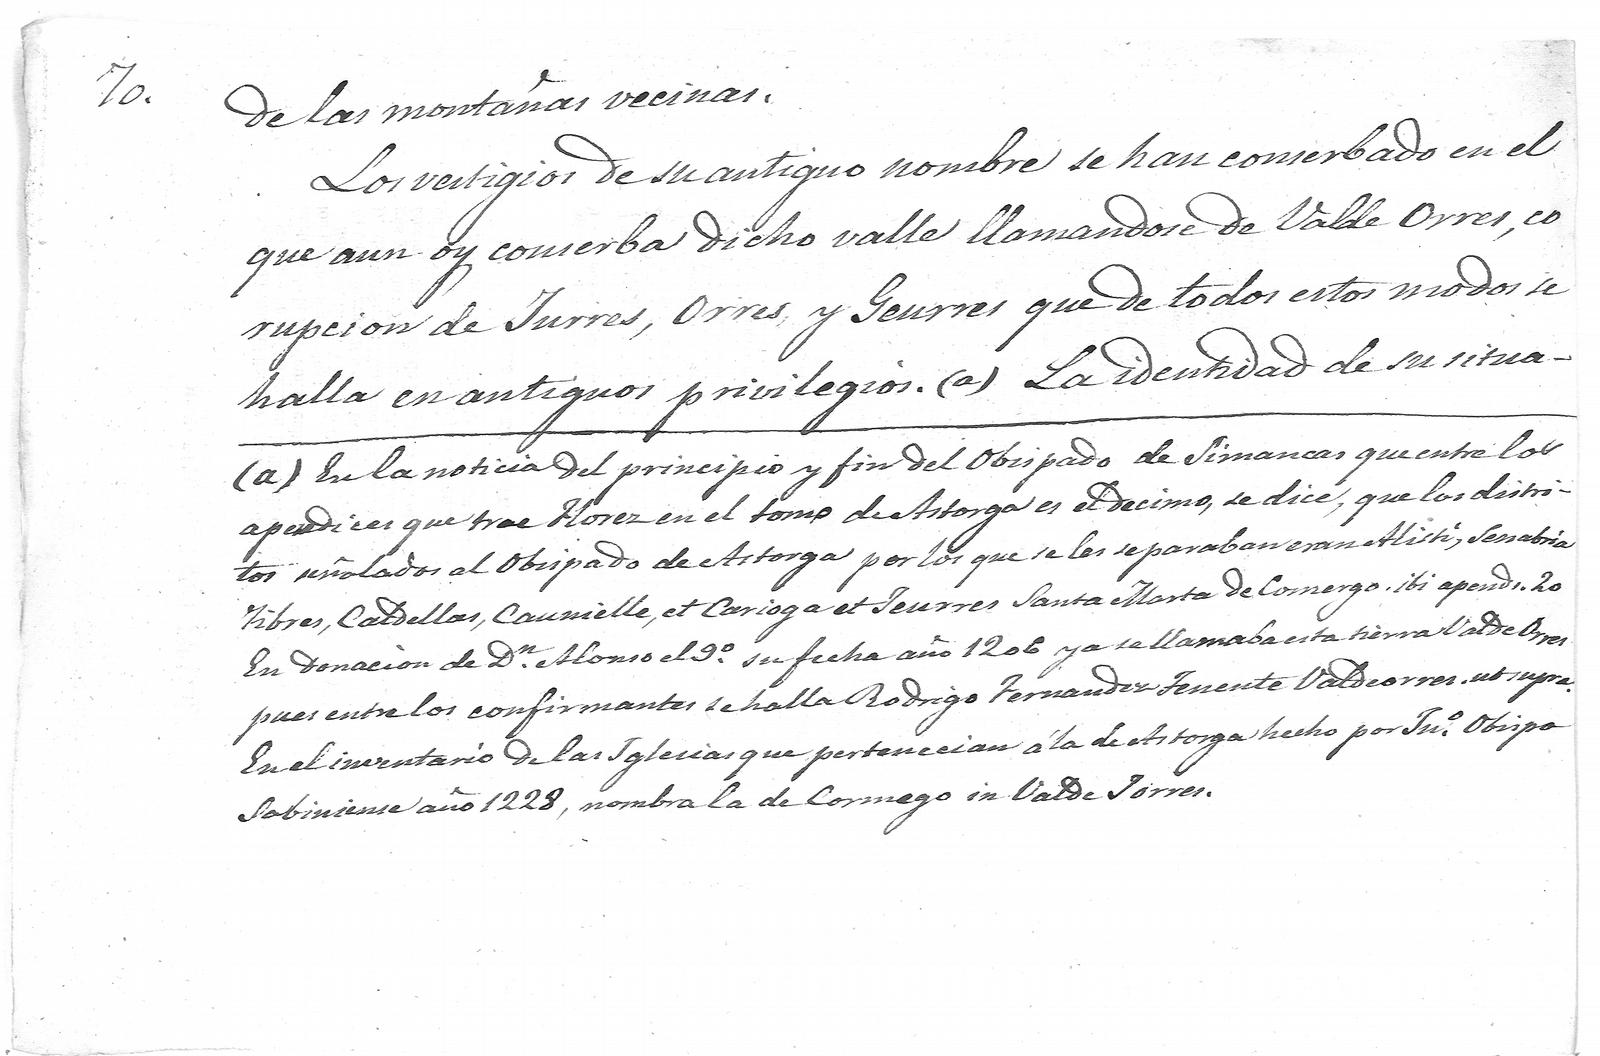 70.
de las montañas vecinas.
Los vestigios de su antiguo nombre se han conserbado en el
que aun oy conserba dicho valle llamandose de Valde Orres, co
rupcion de Jurres, Orres, y Geurres que de todos estos modos se
halla en antiguos privilegios. (a) La identidad de su situa-
(a) En la noticia del principio y fin del Obispado de Simancas que entre los
apendices que trae Florez en el tomo de Astorga es el decimo, se dice, que los distri-
tos señalados al Obispado de Astorga por los que se les separaban eran Alisti, Senabria
Tibres, Caldellas, Caunielle, et Carioga et Jeurres Santa Marta de Comergo. ibi apend. 20
En donacion de Dn. Alonso el 9º. su fecha año 1206 ya se llamaba esta tierra Valde Orres
pues entre los confirmantes se halla Rodrigo Fernandez Tenente Valdeorres. ut supra.
En el inventario de las Iglesias que pertenecian á la de Astorga hecho por Jnº. Obispo
Sabiniense año 1228, nombra la de Cormego in Valde Jorres.